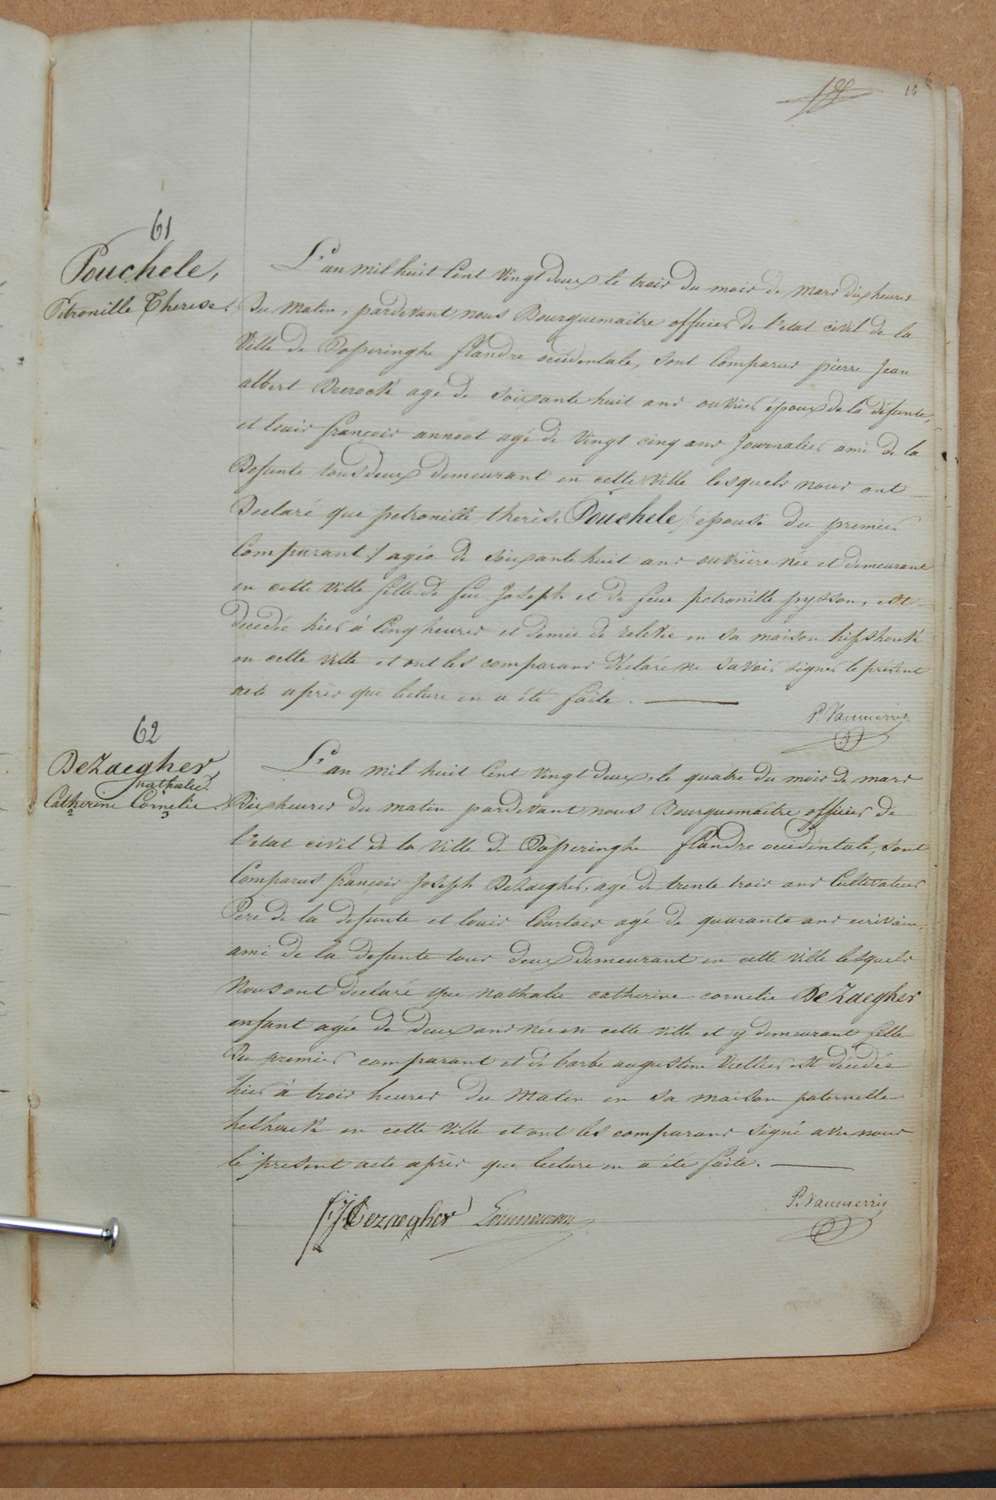 16
61
Pouchele,
Petronille Therese
L'an mil huit Cent Vingt deux le trois du mois de Mars dix heures
Du Matin, pardevant nous Bourguemaitre officier de l'etat civil de la
Ville de Poperinghe flandre occidentale, sont Comparus pierre Jean
albert Decrock agé de soixante huit ans ouvrier époux de la défunte,
et louis françois annoot agé de Vingt cinq ans Journalier ami de la
Defunte tous deux demeurant en cette Ville lesquels nous ont
Declaré que petronille therése Pouchele (epouse du premier
Comparant) agée de soixante huit ans ouvrière née et demeurant
en cette Ville fille de feu Joseph et de feue petronille est
décedée hier à Cinq heures et demie de relevée en sa maison
en cette Ville et ont les comparans déclaré ne savoir signer le présent
acte après que lecture en a été faite.
62
DeZaegher
nathalie
Catherine Cornelie
2 3
L'an mil huit Cent Vingt deux, le quatre du mois de mars
Dix heures du matin pardevant nous Bourguemaitre officier de
l'etat civil de la Ville de Poperinghe flandre occidentale, sont
Comparus françois Joseph DeZaegher, agé de trente trois ans Cultivateur
Pere de la defunte et louis agé de quarante ans ecrivain
ami de la defunte tous deux demeurant en cette Ville lesquels
Nous ont declaré que nathalie catherine cornelie DeZaegher
enfant agée de Deux ans née en cette Ville et y demeurant fille
Du premier comparant et de barbe augustine est décedée
hier à trois heures du Matin en sa maison paternelle
en cette Ville et ont les comparans signé avec nous
le présent acte après que lecture en a été faite.
FJ DeZaegher